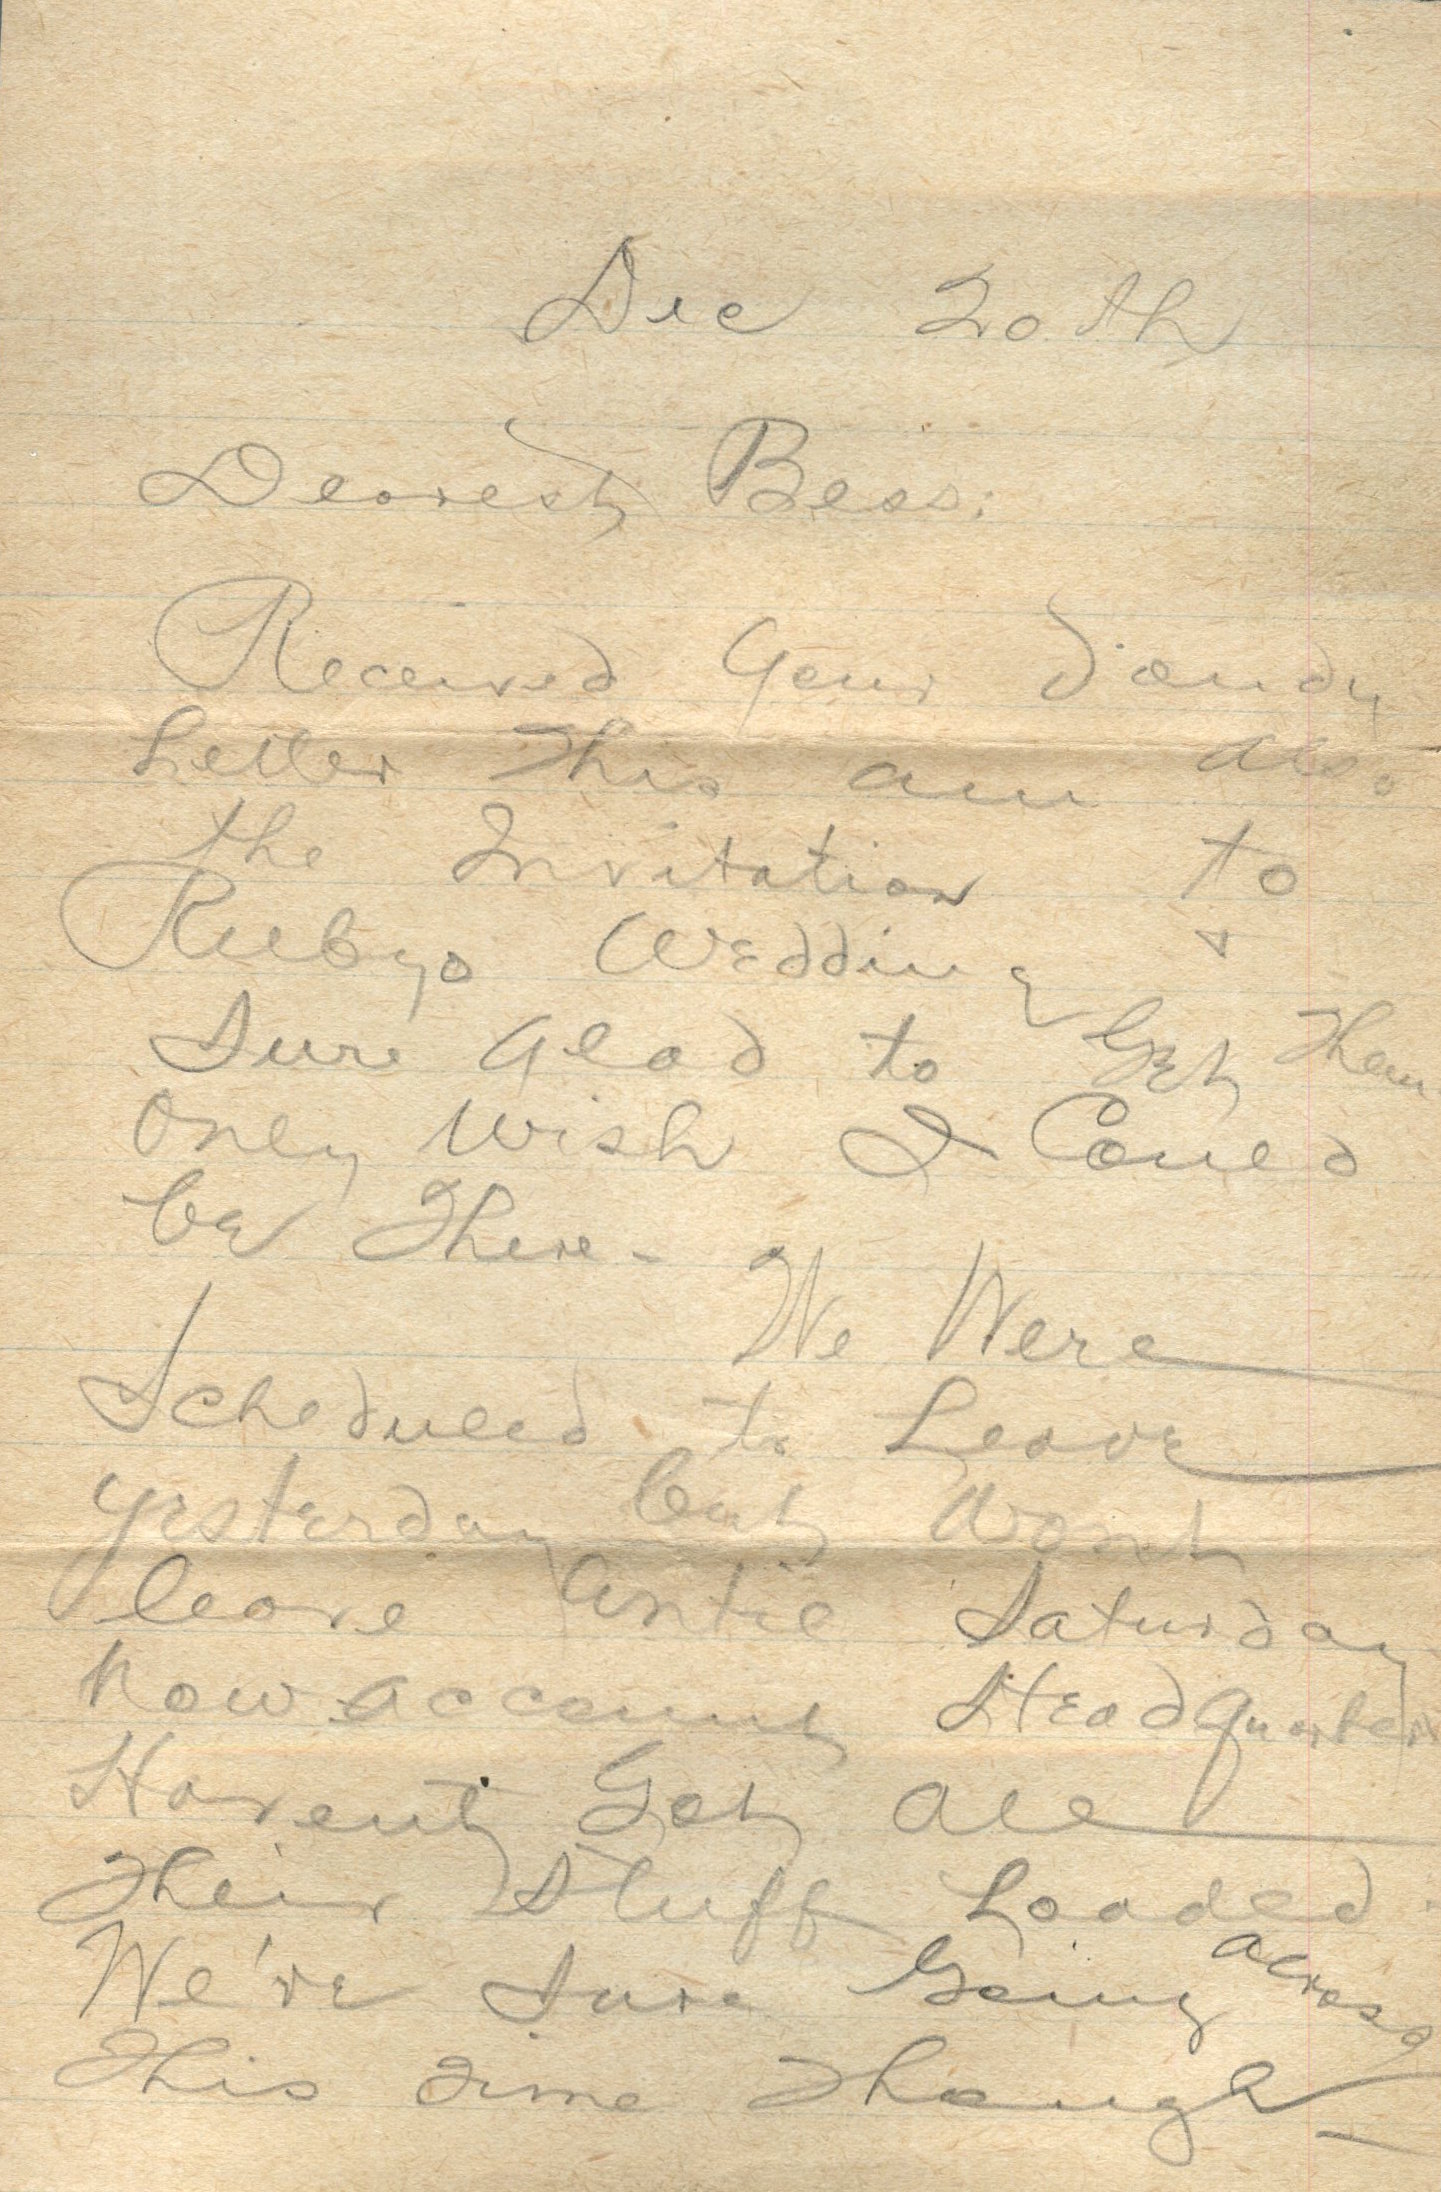 Dec 20th
Dearest Bess:
Received your dandy
Letter This am also
the Invitation to
Rubys Wedding &
Sure Glad to Get Them.
Only Wish I Could
be There - We Were
Scheduled to Leave
yesterday but Wont
leave Until Saturday
Now account Headquarters
Havent Got all
Their Stuff Loaded.
We've Sure Going across
This Time Though -